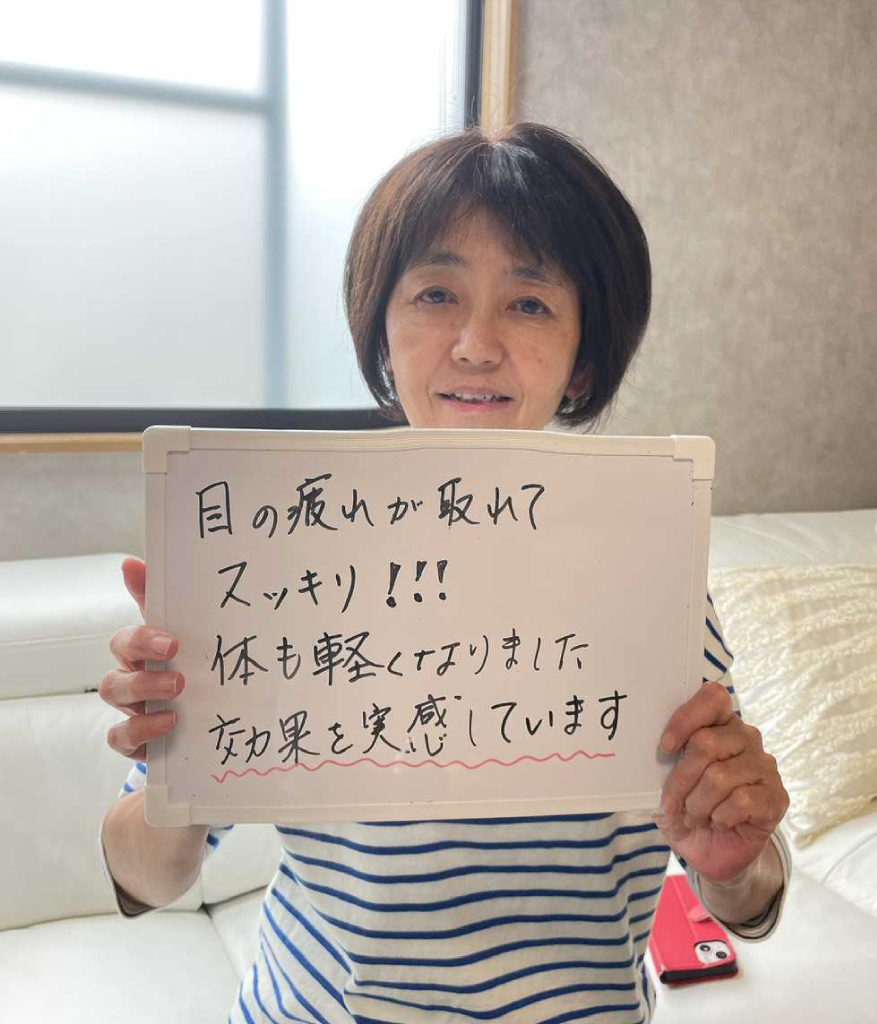 目の疲れが取れて
スッキリ!!!
体も軽くなりました
効果を実感しています